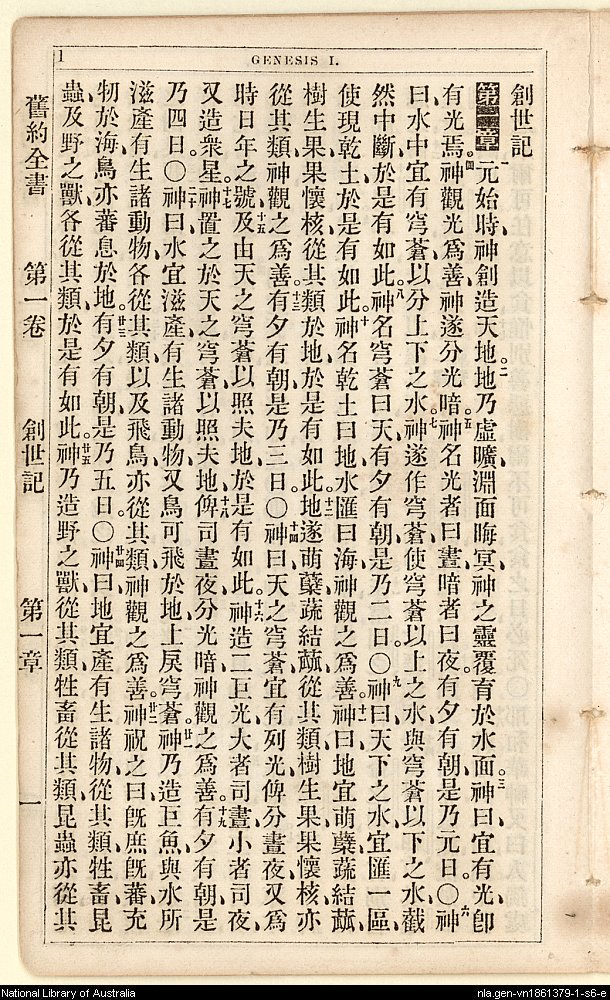 1
GENESIS I.
創世記
第一章 一元始時、神創造天地。二地乃虛曠、淵面晦冥、神之靈覆育於水面。三神曰、宜有光、卽
有光焉。四神觀光爲善、神遂分光暗。五神名光者曰晝、暗者曰夜、有夕有朝、是乃元日。〇六神
曰、水中宜有穹蒼、以分上下之水。七神遂作穹蒼、使穹蒼以上之水、與穹蒼以下之水、截
然中斷、於是有如此。八神名穹蒼曰天、有夕有朝、是乃二日。〇九神曰、天下之水、宜匯一區、
使現乾土、於是有如此。十神名乾土曰地、水匯曰海、神觀之爲善。十一神曰、地宜萌蘖、蔬結蓏、
樹生果、果懷核、從其類於地、於是有如此。十二地遂萌蘖、蔬結蓏、從其類、樹生果、果懷核、亦
從其類、神觀之爲善。十三有夕有朝、是乃三日。〇十四神曰、天之穹蒼、宜有列光、俾分晝夜、又爲
時日年之號。十五及由天之穹蒼、以照夫地、於是有如此。十六神造二巨光、大者司晝、小者司夜、
又造衆星。十七神置之於天之穹蒼、以照夫地。十八俾司晝夜、分光暗、神觀之爲善。十九有夕有朝、是
乃四日。〇二十神曰、水宜滋產有生諸動物、又鳥可飛於地上戾穹蒼。廿一神乃造巨魚、與水所
滋產有生諸動物、各從其類、以及飛鳥、亦從其類、神觀之爲善。廿二神祝之曰、旣庶旣蕃、充
牣於海、鳥亦蕃息於地。廿三有夕有朝、是乃五日。〇廿四神曰、地宜產有生諸物、從其類、牲畜昆
蟲、及野之獸、各從其類、於是有如此。廿五神乃造野之獸、從其類、牲畜從其類、昆蟲亦從其
舊約全書 第一卷 創世記 第一章 一
National Library of Australia
nla.gen-vn1861379-1-s6-e